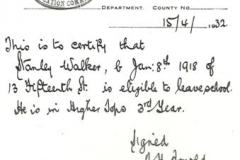 DEPARTMENT. COUNTY No.
15/4/1932
This is to certify that
Stanley Walker, b Jan: 8th 1918 of
13 Fifteenth St. is eligible to leave school.
He is in Higher Tops 3rd Year.
Signed